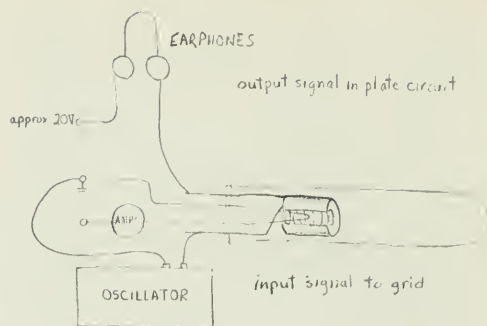 EARPHONES
output signal in plate circuit
approx 20V
AMP.
input signal to grid
OSCILLATOR